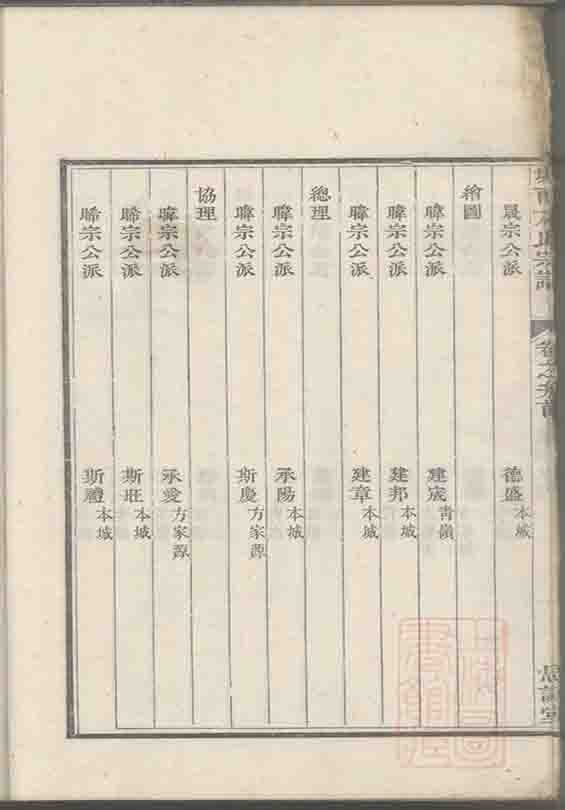 方氏宗譜
卷之首
晟宗公派 德盛 本城
繪圖
暐宗公派 建成 青嶺
暐宗公派 建邦 本城
暐宗公派 建章 本城
總理
暐宗公派 承陽 本城
暐宗公派 斯慶 方家源
協理
暐宗公派 承愛 方家源
晞宗公派 斯旺 本城
晞宗公派 斯禮 本城